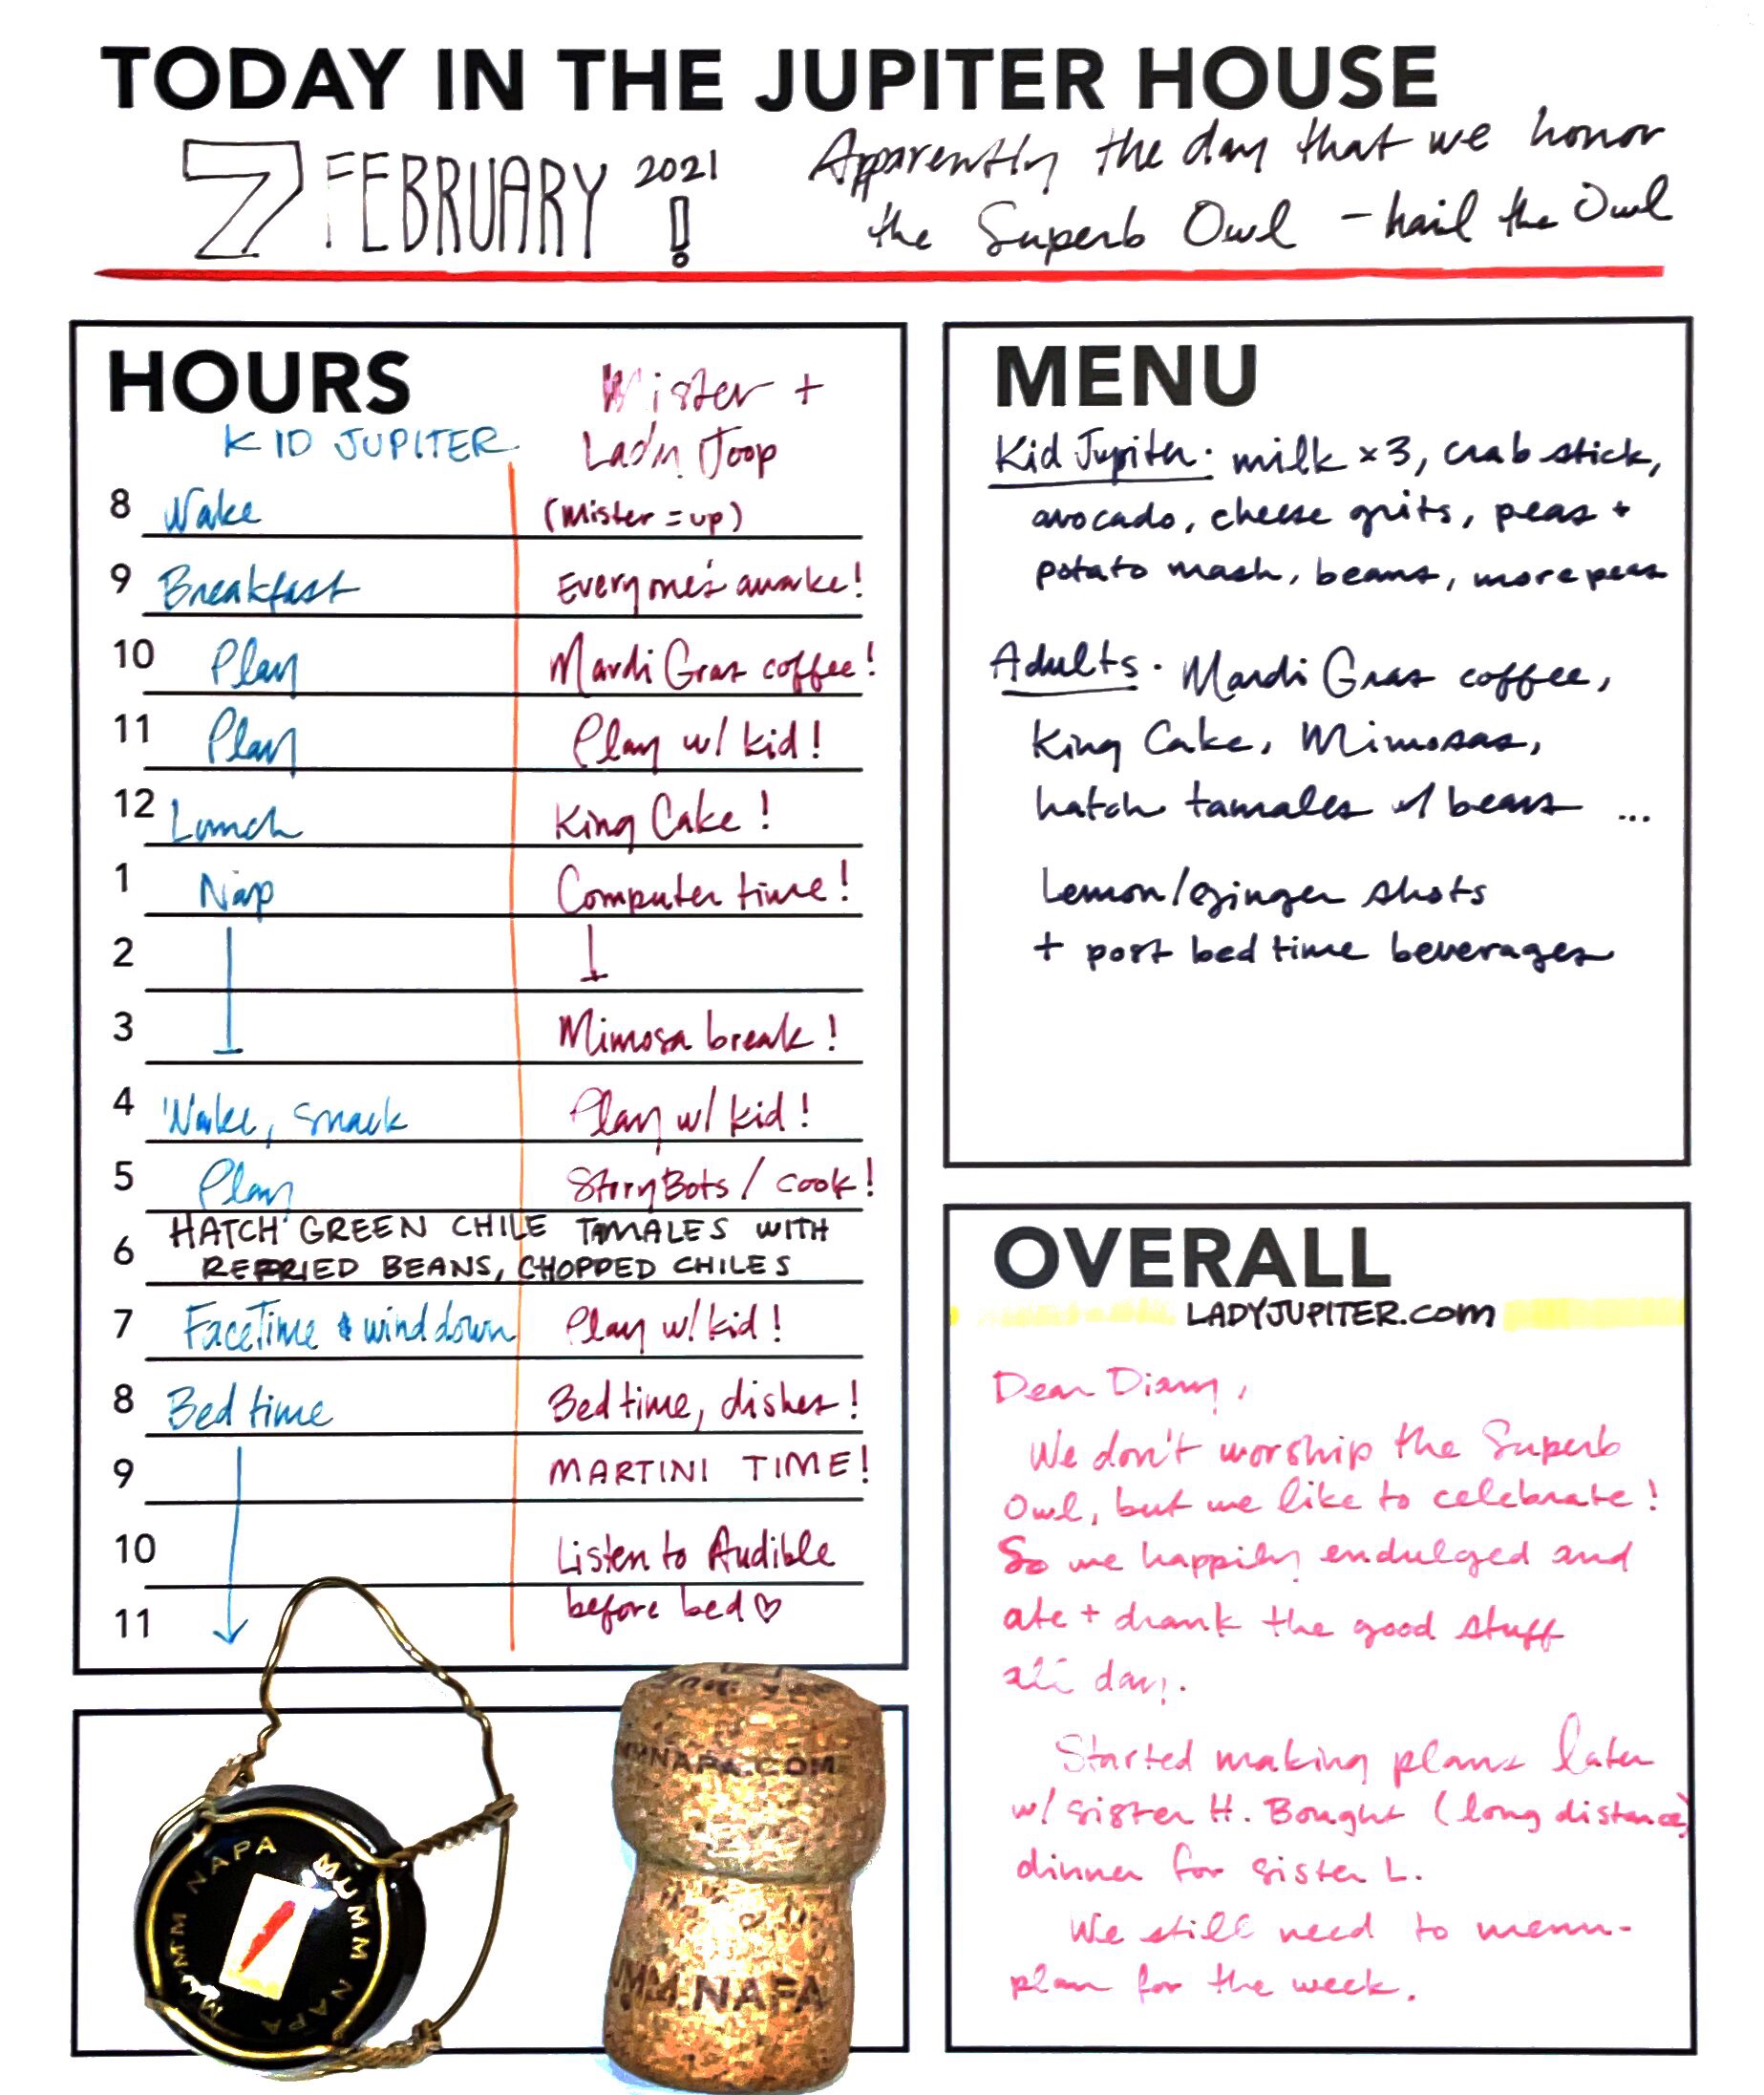 TODAY IN THE JUPITER HOUSE
7 FEBRUARY 2021!
Apparently the day that we honor
the Superb Owl - hail the Owl
HOURS
KID JUPITER
Mister +
Lady Joop
8 Wake (Mister = up)
9 Breakfast Everyone's awake!
10 Play Mardi Gras coffee!
11 Play Play w/ kid!
12 Lunch King Cake!
1 Nap Computer time!
2
3 Mimosa break!
4 Wake, snack Play w/ kid!
5 Play StoryBots / cook!
6 HATCH GREEN CHILE TAMALES WITH
REFRIED BEANS, CHOPPED CHILES
7 FaceTime & wind down Play w/ kid!
8 Bedtime Bedtime, dishes!
9 MARTINI TIME!
10 Listen to Audible
11 before bed ♡
MENU
Kid Jupiter: milk x3, crab stick,
avocado, cheese grits, peas +
potato mash, beans, more peas
Adults. Mardi Gras coffee,
King Cake, Mimosas,
hatch tamales w/ beans ...
Lemon/ginger shots
+ post bedtime beverages
OVERALL
LADYJUPITER.com
Dear Diary,
We don't worship the Superb
Owl, but we like to celebrate!
So we happily endulged and
ate + drank the good stuff
all day.
Started making plans later
w/ sister H. Bought (long distance)
dinner for sister L.
We still need to menu-
plan for the week.
MUMM NAPA MUMM NAPA
MNAPA.COM
MUMM NAPA